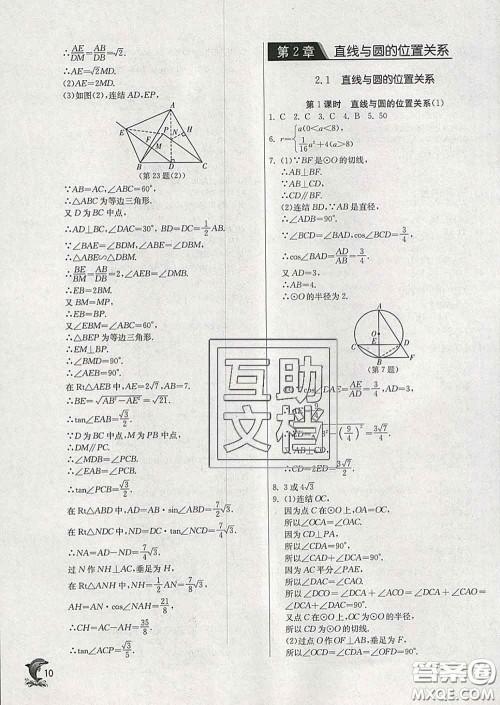 ∴AE/DM=AB/DB=√2.
∴AE=√2MD.
(2)AE=2MD.
(3)如图(2),连结AD,EP,
A
E
P
H
F
N
M
B
D
C
(第23题(2))
∵AB=AC,∠ABC=60°,
∴△ABC为等边三角形.
又D为BC中点,
∴AD⊥BC,∠DAC=30°,BD=DC=1/2 AB.
∵∠BAE=∠BDM,∠ABE=∠DBM,
∴△ABE∽△DBM.
∴BE/BM=AB/DB=2,∠AEB=∠DMB.
∴EB=2BM.
又BM=MP,
∴EB=BP.
又∠EBM=∠ABC=60°,
∴△BEP为等边三角形.
∴EM⊥BP.
∴∠BMD=90°.
∴∠AEB=90°.
在Rt△AEB中,AE=2√7,AB=7.
∴BE=√(AB²-AE²)=√21.
∴tan∠EAB=√3/2.
∵D为BC中点,M为BP中点,
∴DM∥PC.
∴∠MDB=∠PCB.
∴∠EAB=∠PCB.
∴tan∠PCB=√3/2.
在Rt△ABD中,AD=AB·sin∠ABD=7/2√3.
在Rt△NDC中,ND=DC·tan∠PCB=7/4√3.
∴NA=AD-ND=7/4√3.
过N作NH⊥AC,垂足为H,
在Rt△ANH中,NH=1/2 AN=7/8√3.
AH=AN·cos∠NAH=21/8,
∴CH=AC-AH=35/8.
∴tan∠ACP=√3/5.
10
第2章 直线与圆的位置关系
2.1 直线与圆的位置关系
第1课时 直线与圆的位置关系(1)
1. C 2. C 3. C 4. B 5. 50
6. r={a(0<a<8), 1/16 a²+4(a>8)
7. (1)∵BF是⊙O的切线,
∴AB⊥BF.
∵AB⊥CD,
∴CD∥BF.
(2)连结BD,∵AB是直径,
∴∠ADB=90°.
∵∠BCD=∠BAD,cos∠BCD=3/4,
∴cos∠BAD=AD/AB=3/4.
又AD=3,
∴AB=4.
∴⊙O的半径为2.
A
O
C
E
D
B
F
(第7题)
互助文档
DAE=AE/AD=3/4,AD=3,
(9/4)²=3√7/4.
∴CD=2ED=3√7/2.
8. 3或4√3
9. (1)连结OC,
因为点C在⊙O上,OA=OC,
所以∠OCA=∠OAC.
因为CD⊥PA,
所以∠CDA=90°.
所以∠CAD+∠DCA=90°.
因为AC平分∠PAE,
所以∠DAC=∠CAO.
所以∠DCO=∠DCA+∠ACO=∠DCA+∠CAO=∠DCA+∠DAC=90°.
又因为点C在⊙O上,OC为⊙O的半径,
所以CD为⊙O的切线.
(2)过点O作OF⊥AB,垂足为F,
所以∠OCD=∠CDA=∠OFD=90°.
答案圈
MXQE.COM